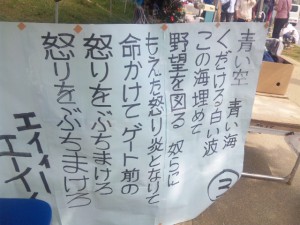 青い空 青い海
くだける白い波
この海埋めて
野望を図る 奴らに
もえた怒り炎となりて
命かけてゲート前の
怒りをぶちまけろ
怒りをぶちまけろ
エイィー
エイ
③